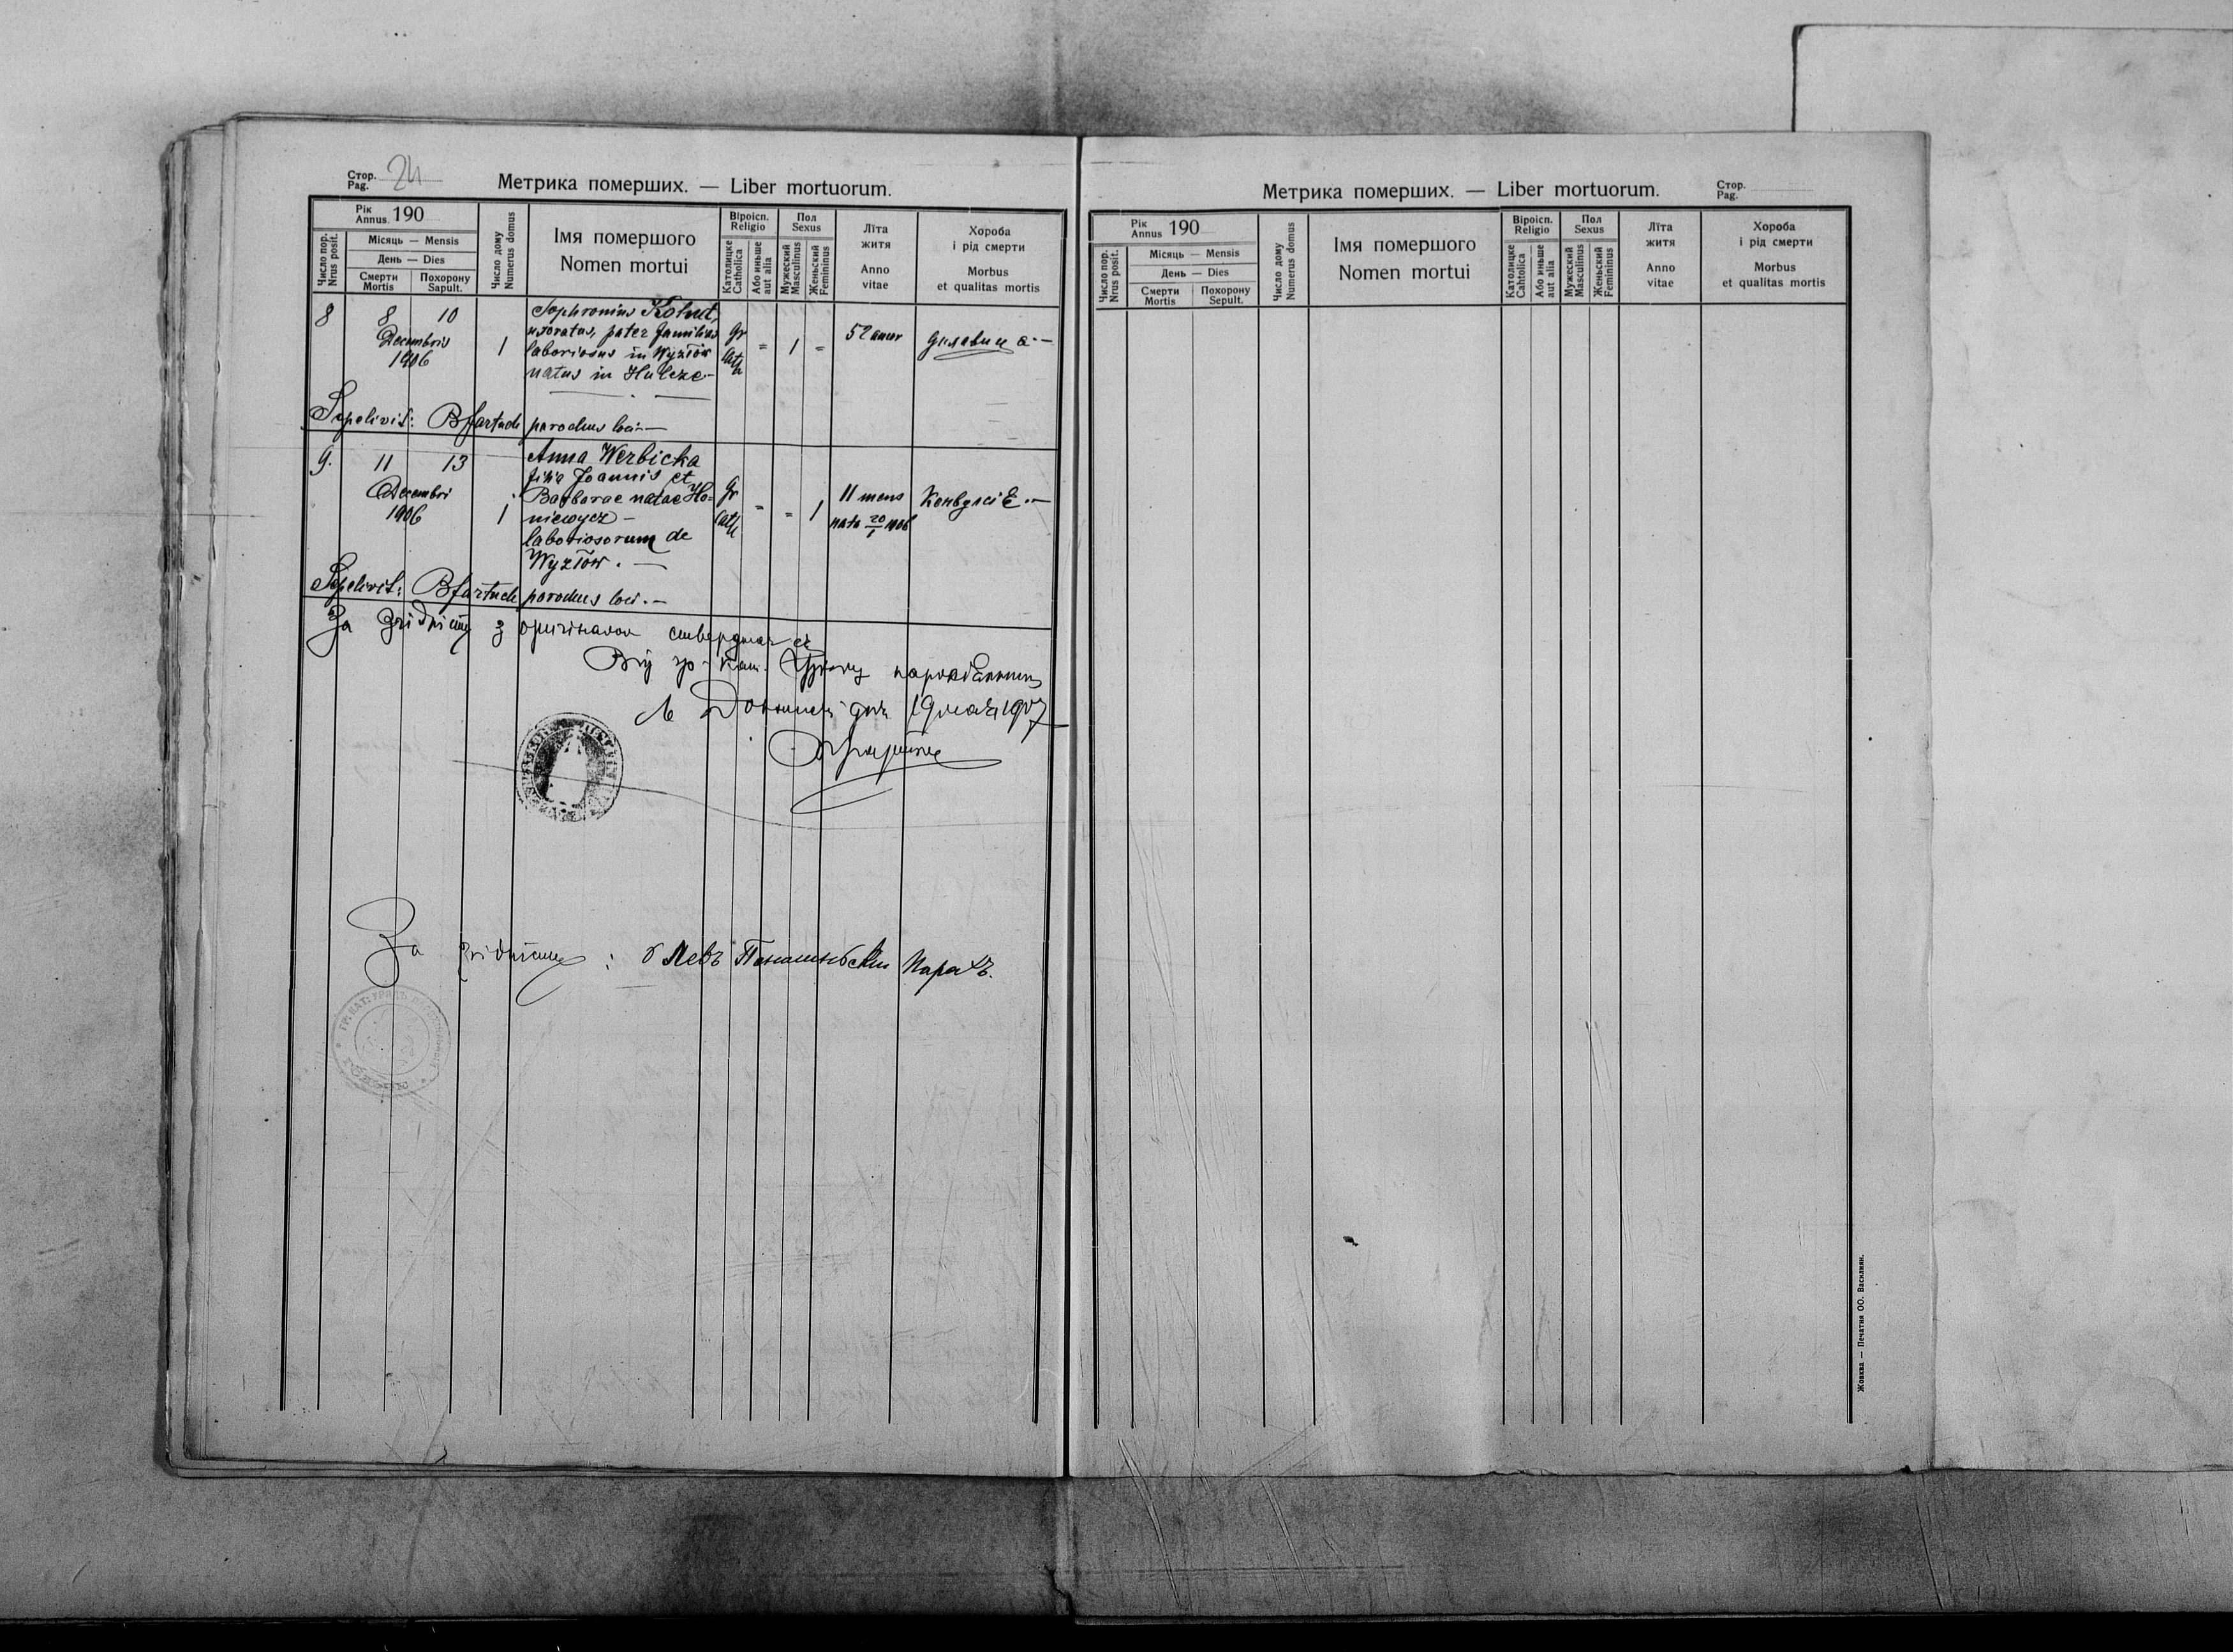 Стор.
Pag. 24
Метрика померших. — Liber mortuorum.
Число пор.
Nrus posit.
Рік
Annus. 190
Місяць — Mensis
День — Dies
Смерти
Mortis
Похорону
Sapult.
Число дому
Numerus domus
Імя помершого
Nomen mortui
Віроісп.
Religio
Католицке
Catholica
Або иньше
aut alia
Пол
Sexus
Мужеский
Masculinus
Женьский
Femininus
Лїта
житя
Anno
vitae
Хороба
і рід смерти
Morbus
et qualitas mortis
8 8 10
Decembris
1906
1
Sophronius Kohut,
uxoratus, pater familias
laboriosus in Wyżłów
natus in Hulcze —
Gr
Cath
= 1 =
52 annor
Sepelivit: parochus loci —
9. 11 13
Decembri
1906
1
Anna Werbicka
filia Joannis et
Barbarae natae Ho-
niewycz —
laboriosorum de
Wyżłów. —
Gr
Cath
= = 1
11 mens
nata 20/1 1906
Конвулсіє. —
Sepelivit: parochus loci. —
За зрідність з оригіналом стверджає ся
Від гр. кат. Уряду парохіяльного
дня 19 мая 1907
За згідність: о Левъ Парохъ.
Метрика померших. — Liber mortuorum.
Стор.
Pag.
Число пор.
Nrus posit.
Рік
Annus 190
Місяць — Mensis
День — Dies
Смерти
Mortis
Похорону
Sepult.
Число дому
Numerus domus
Імя помершого
Nomen mortui
Віроісп.
Religio
Католицке
Cahtolica
Або иньше
aut alia
Пол
Sexus
Мужеский
Masculinus
Женьский
Femininus
Лїта
житя
Anno
vitae
Хороба
і рід смерти
Morbus
et qualitas mortis
Жовква — Печатня ОО. Василиян.